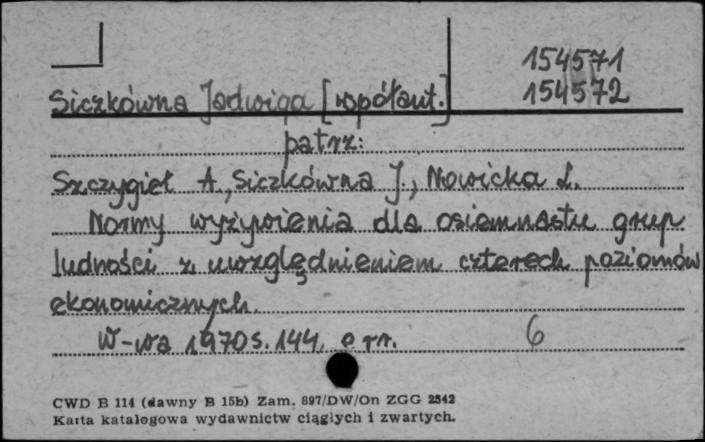 154571
154572
Siczkówna Jadwiga [współaut.]
patrz:
Szczygieł A., Siczkówna J., Nowicka L.
Normy wyżywienia dla osiemnastu grup
ludności z uwzględnieniem czterech poziomów
ekonomicznych.
W-wa 1970 s. 144,
6
CWD B 114 (dawny B 15b) Zam. 897/DW/On ZGG 2542
Karta katalogowa wydawnictw ciągłych i zwartych.